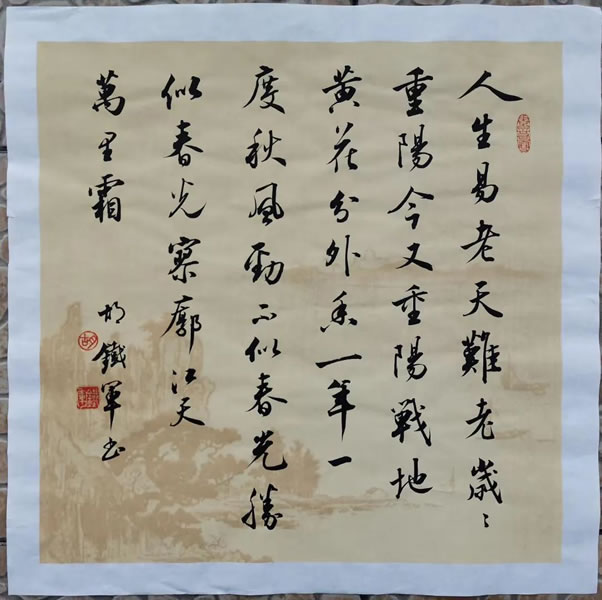 人生易老天難老歲〻
重陽今又重陽戰地
黄花分外香一年一
度秋風勁不似春光勝
似春光寥廓江天
萬里霜
胡鐵軍书
胡